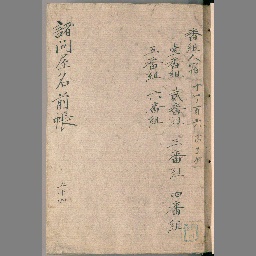 番組人宿
壱番組 弐番組 三番組 四番組
五番組 六番組
諸問屋名前帳
五十四